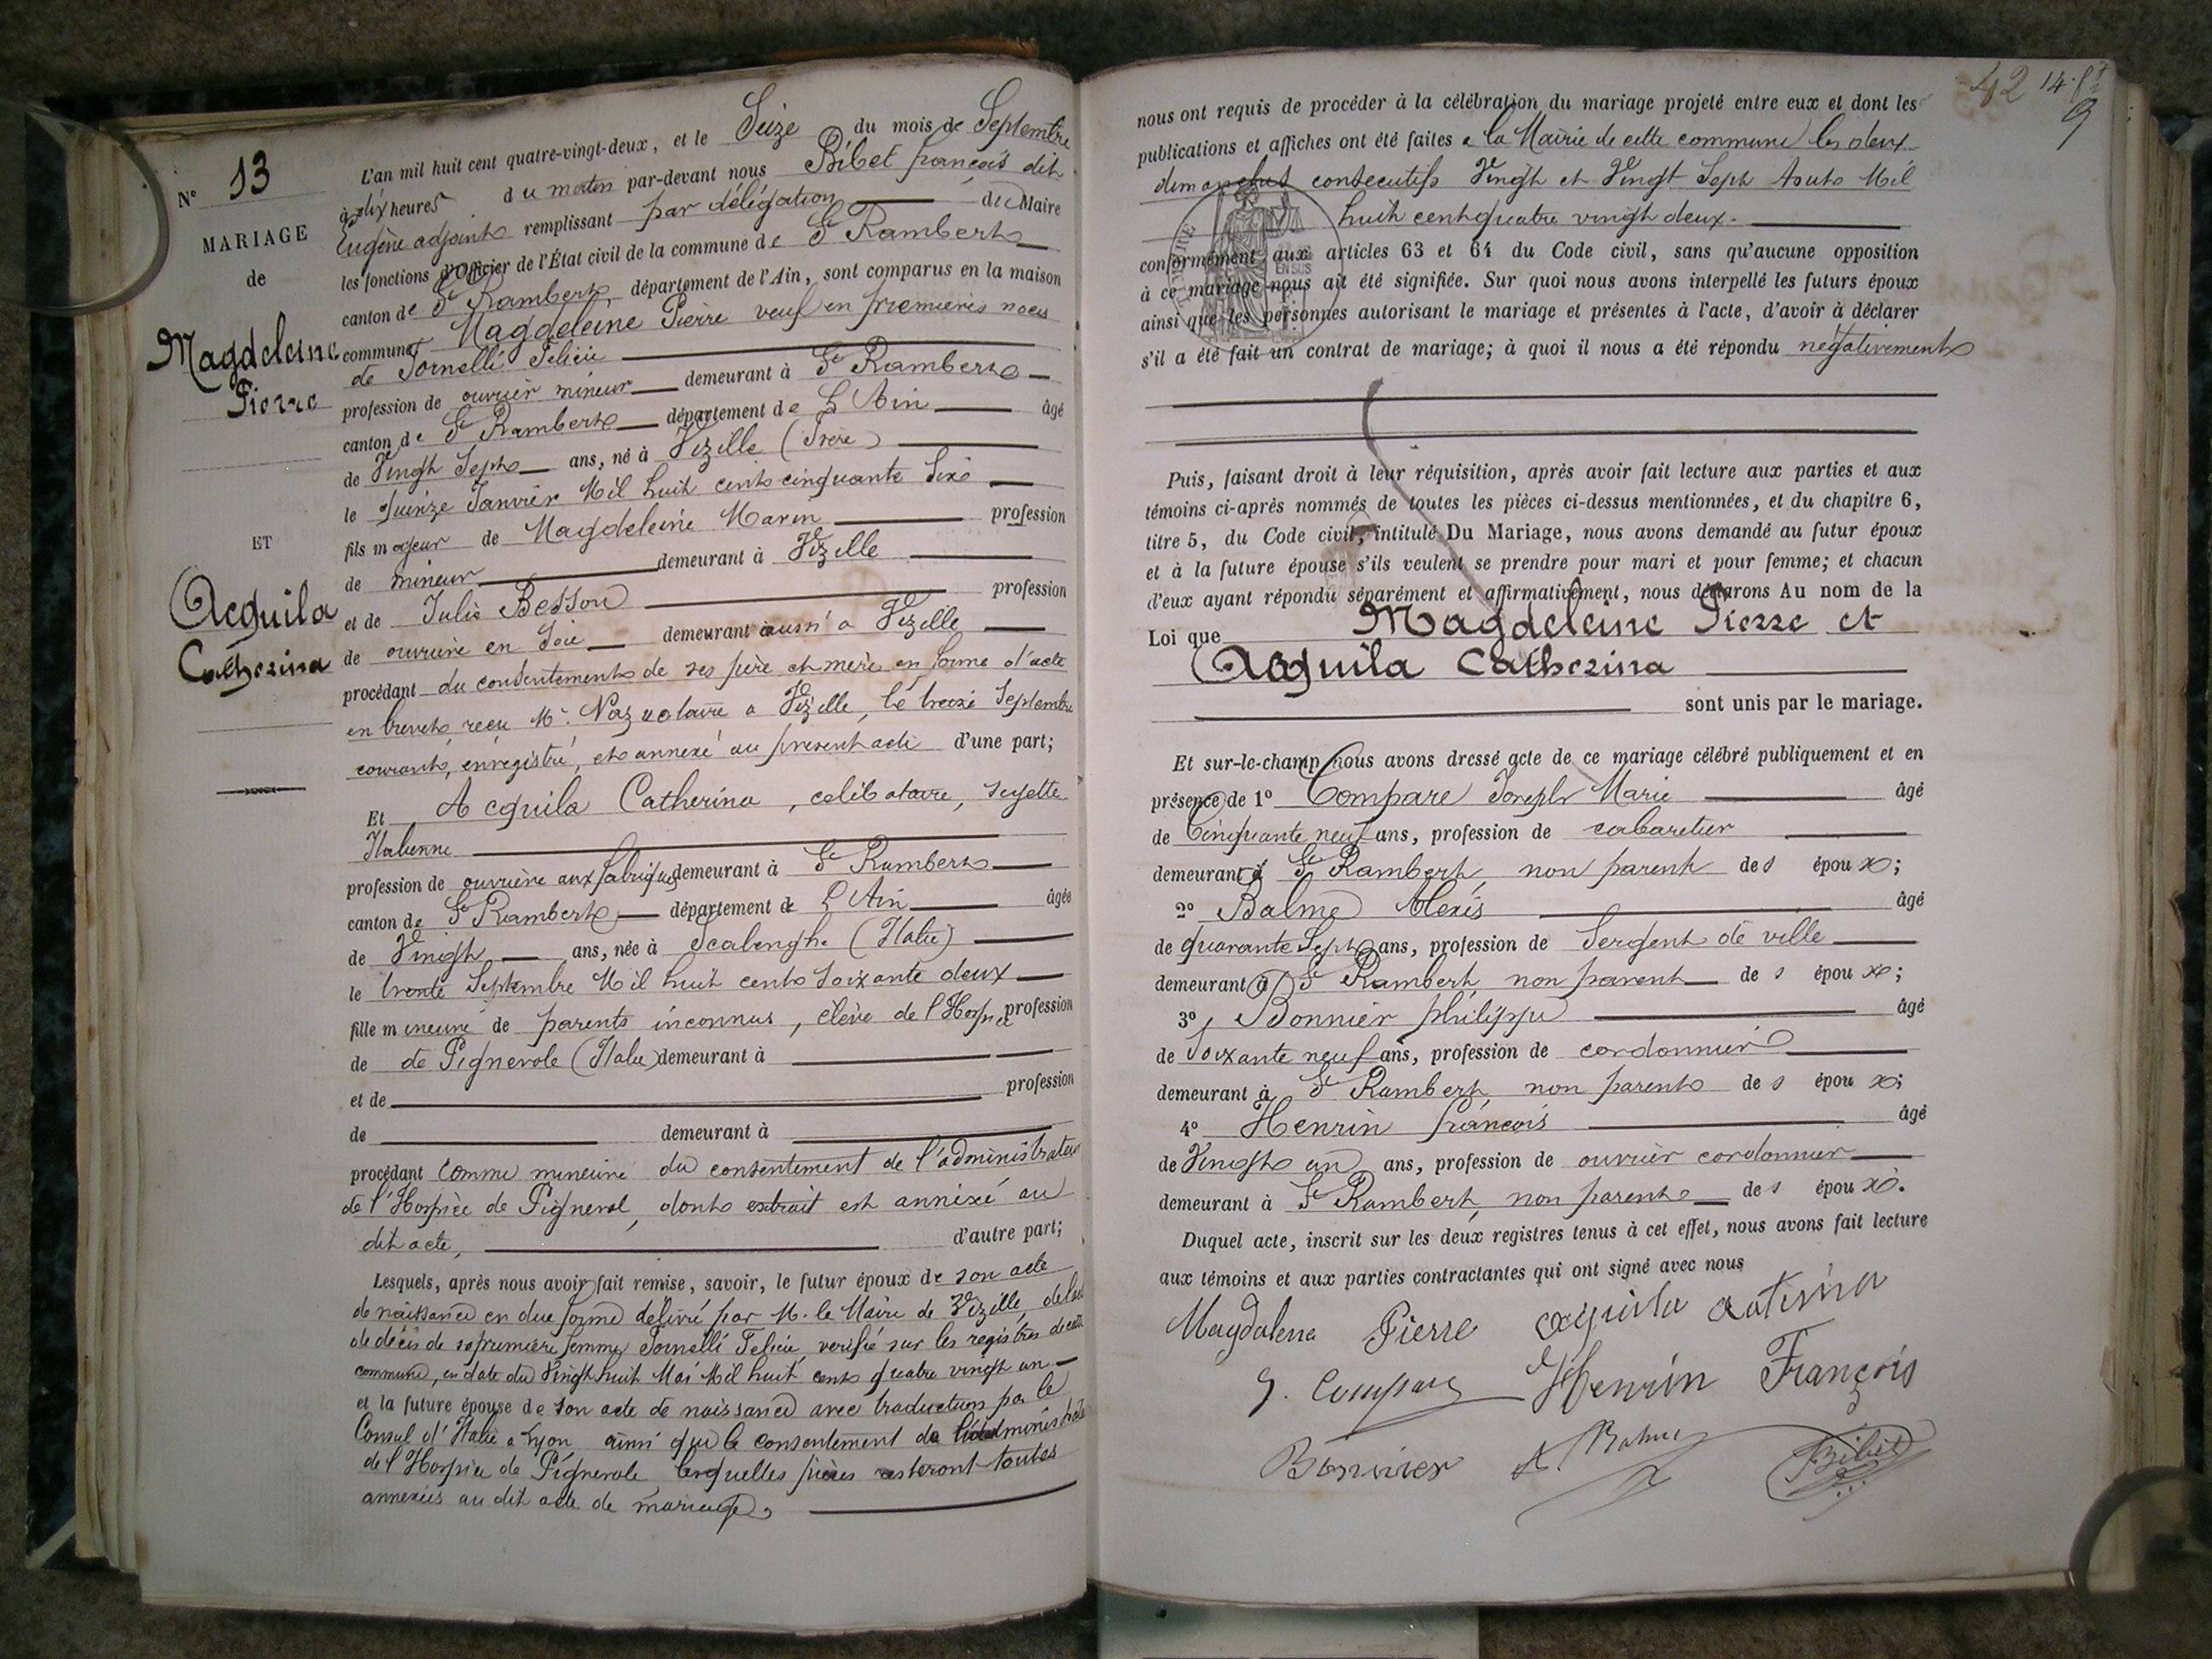 N° 13
MARIAGE
de
Magdeleine
Pierre
ET
Acquila
Catherina
L'an mil huit cent quatre-vingt-deux, et le Seize du mois de Septembre
à dix heures du matin par-devant nous Bibet françois dit
Eugène adjoint remplissant par délégation du Maire
les fonctions d'Officier de l'État civil de la commune de St Rambert
canton de St Rambert, département de l'Ain, sont comparus en la maison
commune Magdeleine Pierre veuf en premières noces
de Tornelli Félicie
profession de ouvrier mineur demeurant à St Rambert
canton de St Rambert département de L'Ain âgé
de Vingt Sept ans, né à Vizille (Isère)
le quinze Janvier Mil huit cent cinquante Six
fils majeur de Magdeleine Marin profession
de mineur demeurant à Vizille
et de Julie Besson profession
de ouvrière en Soie demeurant aussi à Vizille
procédant du consentement de ses père et mère en forme d'acte
en brevet, reçu Mr. notaire a Vizille, le treize Septembre
courant, enregistré, et annexé au présent acte d'une part;
Et Acquila Catherina, celibataire, sujette
Italienne
profession de ouvrière aux fabriques demeurant à St Rambert
canton de St Rambert département de L'Ain âgée
de Vingt ans, née à Scalenghe (Italie)
le trente Septembre Mil huit cent Soixante deux
fille mineure de parents inconnus, élève de l'Hospice profession
de de Pignerole (Italie) demeurant à
et de profession
de demeurant à
procédant comme mineure du consentement de l'administrateur
de l'Hospice de Pignerol, dont extrait est annexé au
dit acte, d'autre part;
Lesquels, après nous avoir fait remise, savoir, le futur époux de son acte
de naissance en due forme délivré par M. le Maire de Vizille,
de décès de sa première femme Tornelli Félicie, verifié sur les registres de cette
commune, en date du Vingt huit Mai Mil huit cent quatre vingt un
et la future épouse de son acte de naissance avec traduction par le
Consul d'Italie a Lyon ainsi que le consentement de
de l'Hospice de Pignerole, lesquelles pièces resteront toutes
annexées au dit acte de mariage,
42 14.
9
nous ont requis de procéder à la célébration du mariage projeté entre eux et dont les
publications et affiches ont été faites a la Mairie de cette commune les deux
dimanches consecutifs Vingt et Vingt Sept Aout Mil
huit cent quatre vingt deux.
conformément aux articles 63 et 64 du Code civil, sans qu'aucune opposition
à ce mariage nous ait été signifiée. Sur quoi nous avons interpellé les futurs époux
ainsi que les personnes autorisant le mariage et présentes à l'acte, d'avoir à déclarer
s'il a été fait un contrat de mariage; à quoi il nous a été répondu négativement
Puis, faisant droit à leur réquisition, après avoir fait lecture aux parties et aux
témoins ci-après nommés de toutes les pièces ci-dessus mentionnées, et du chapitre 6,
titre 5, du Code civil, intitulé Du Mariage, nous avons demandé au futur époux
et à la future épouse s'ils veulent se prendre pour mari et pour femme; et chacun
d'eux ayant répondu séparément et affirmativement, nous déclarons Au nom de la
Loi que Magdeleine Pierre et
Acquila Catherina
sont unis par le mariage.
Et sur-le-champ nous avons dressé acte de ce mariage célébré publiquement et en
présence de 1° Compare Joseph Marie âgé
de Cinquante neuf ans, profession de cabaretier
demeurant à St Rambert, non parent des époux;
2° Balme Alexis âgé
de quarante Sept ans, profession de Sergent de ville
demeurant à St Rambert, non parent des époux;
3° Bonnier philippe âgé
de Soixante neuf ans, profession de cordonnier
demeurant à St Rambert, non parent des époux;
4° Henrin françois âgé
de Vingt un ans, profession de ouvrier cordonnier
demeurant à St Rambert, non parent des époux.
Duquel acte, inscrit sur les deux registres tenus à cet effet, nous avons fait lecture
aux témoins et aux parties contractantes qui ont signé avec nous
Magdalena Pierre Acquila Caterina
J. Compare Henrin François
Bonnier A. Balme Bibet